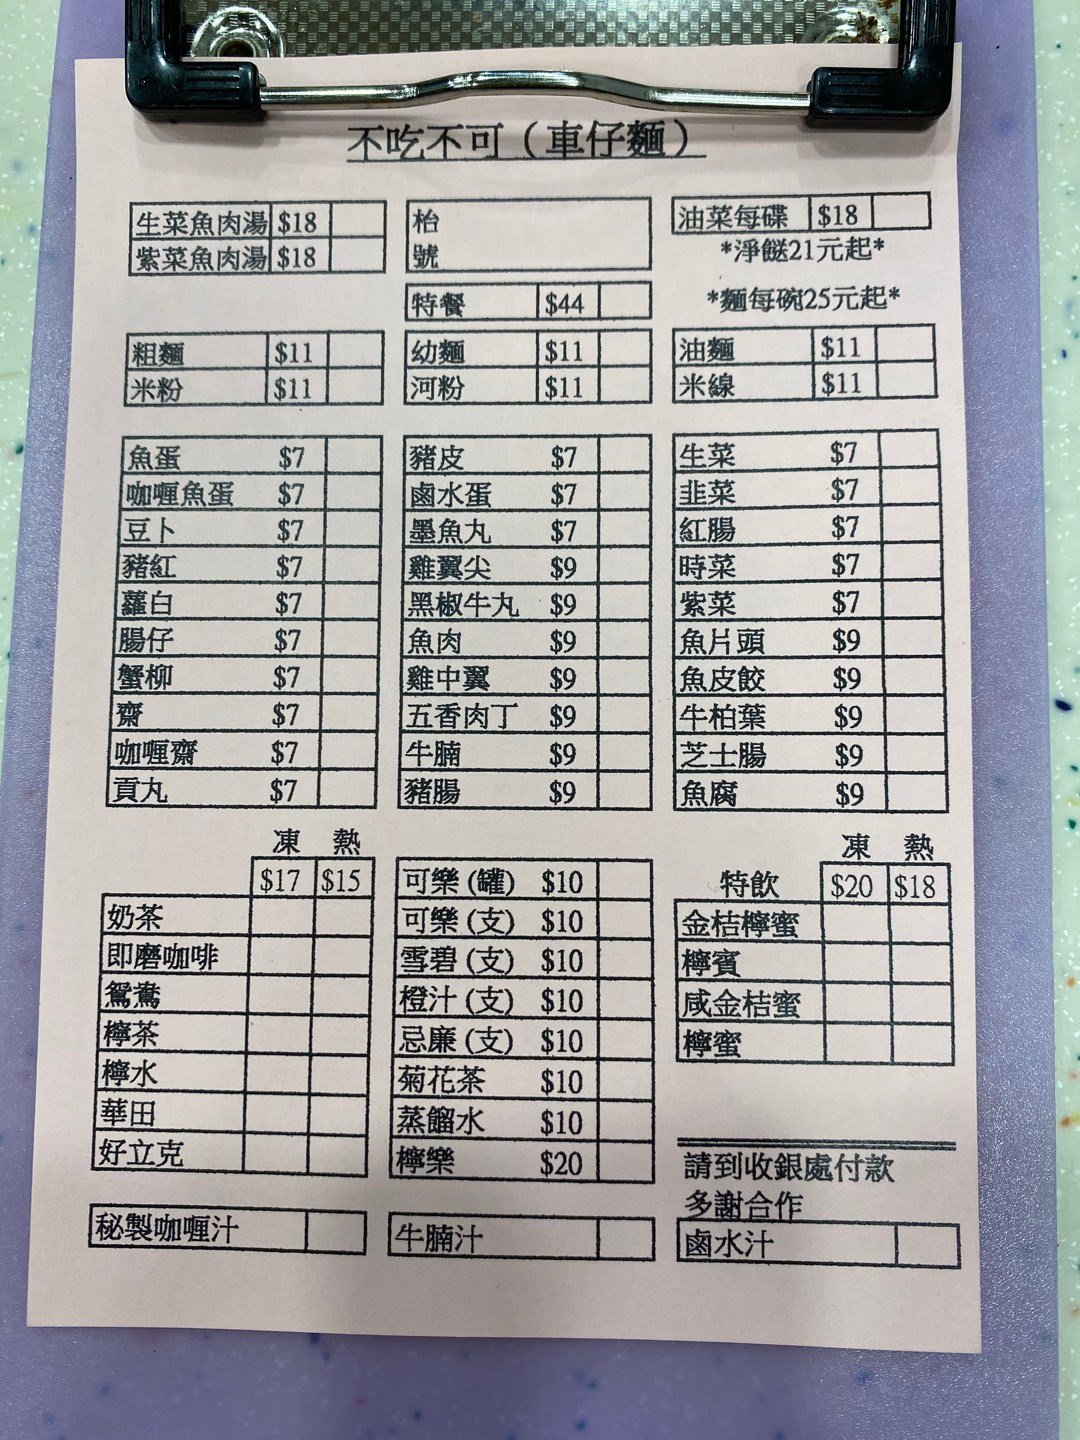 不吃不可（車仔麵）
生菜魚肉湯 $18
紫菜魚肉湯 $18
枱號
油菜每碟 $18
*淨餸21元起*
特餐 $44
*麵每碗25元起*
粗麵 $11 幼麵 $11 油麵 $11
米粉 $11 河粉 $11 米線 $11
魚蛋 $7 豬皮 $7 生菜 $7
咖喱魚蛋 $7 鹵水蛋 $7 韭菜 $7
豆卜 $7 墨魚丸 $7 紅腸 $7
豬紅 $7 雞翼尖 $9 時菜 $7
蘿白 $7 黑椒牛丸 $9 紫菜 $7
腸仔 $7 魚肉 $9 魚片頭 $9
蟹柳 $7 雞中翼 $9 魚皮餃 $9
齋 $7 五香肉丁 $9 牛柏葉 $9
咖喱齋 $7 牛腩 $9 芝士腸 $9
貢丸 $7 豬腸 $9 魚腐 $9
凍 熱
$17 $15
奶茶
即磨咖啡
鴛鴦
檸茶
檸水
華田
好立克
可樂 (罐) $10
可樂 (支) $10
雪碧 (支) $10
橙汁 (支) $10
忌廉 (支) $10
菊花茶 $10
蒸餾水 $10
檸樂 $20
凍 熱
特飲 $20 $18
金桔檸蜜
檸賓
咸金桔蜜
檸蜜
請到收銀處付款
多謝合作
秘製咖喱汁 牛腩汁 鹵水汁